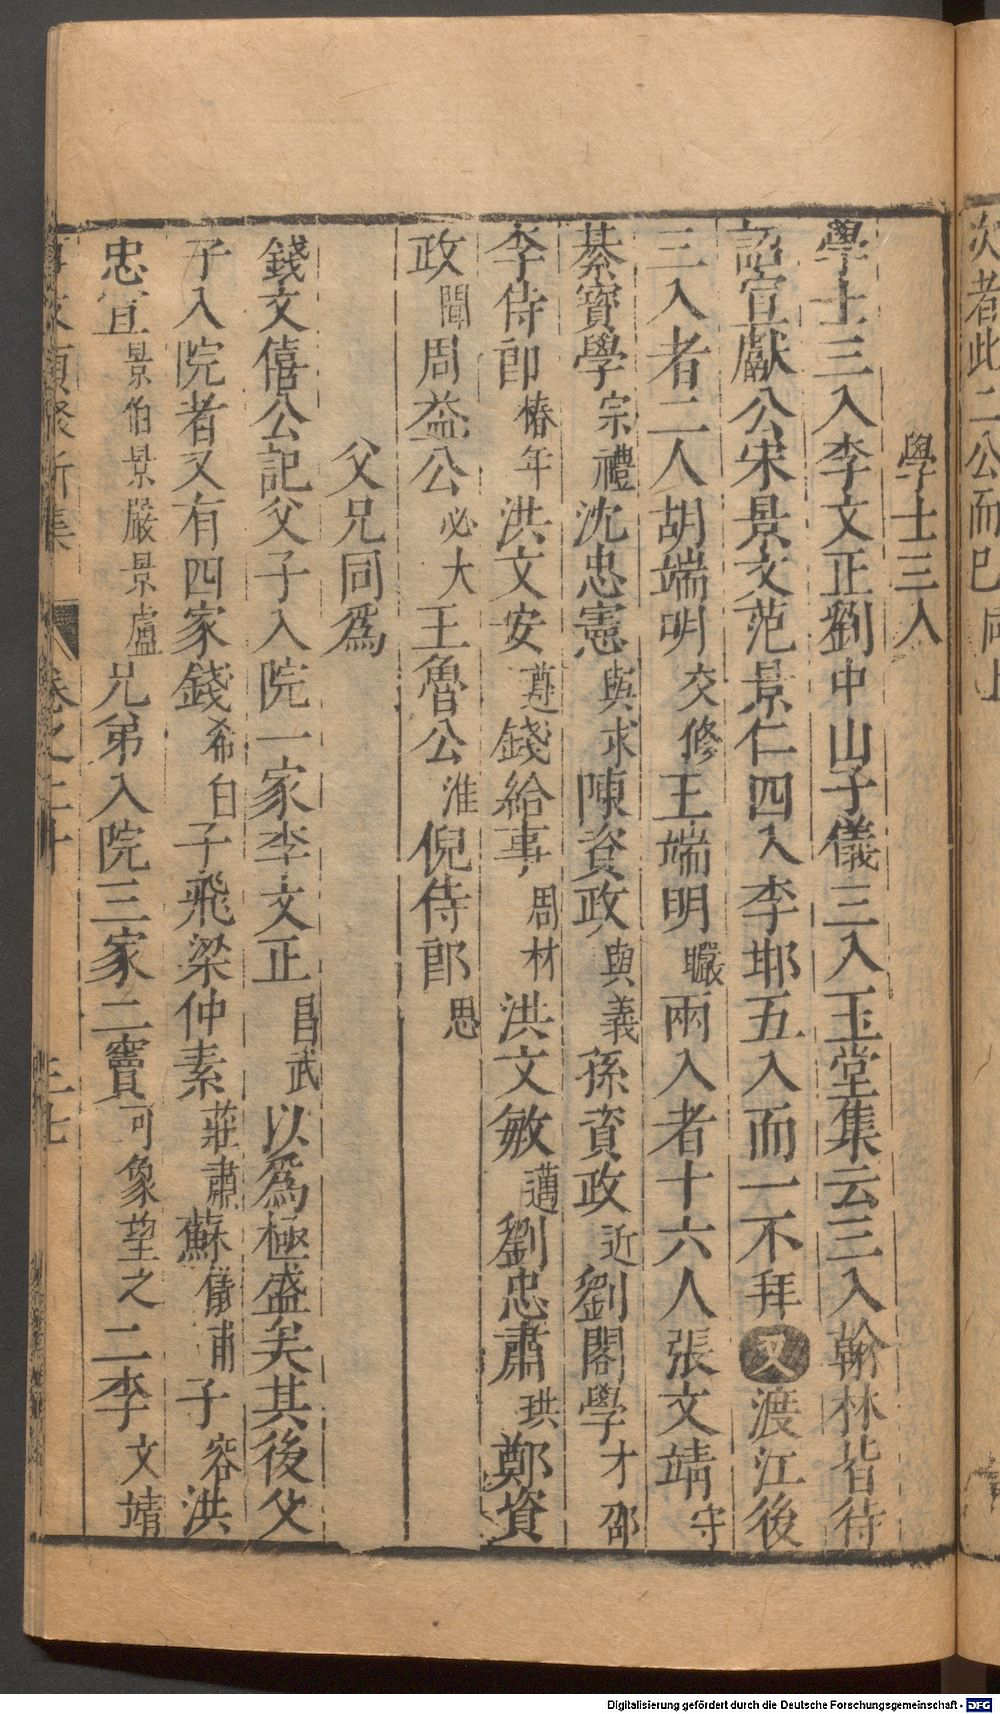 次者此二公而已同上
學士三入
學士三入李文正劉中山子儀三入玉堂集云三入翰林皆待
詔宣獻公宋景文范景仁四入李邯五入而一不拜又渡江後
三入者二人胡端明交修王端明曮兩入者十六人張文靖守
綦寶學宗禮沈忠憲與求陳資政與義孫資政近劉閣學才邵
李侍郎椿年洪文安遵錢給事周材洪文敏邁劉忠肅珙鄭資
政聞周益公必大王魯公淮倪侍郎思
父兄同爲
錢文僖公記父子入院一家李文正昌武以爲極盛矣其後父
子入院者又有四家錢希白子飛梁仲素莊肅蘇儀甫子容洪
忠宣景伯景嚴景盧兄弟入院三家二竇可象望之二李文靖
卷之二十
三七
Digitalisierung gefördert durch die Deutsche Forschungsgemeinschaft - DFG